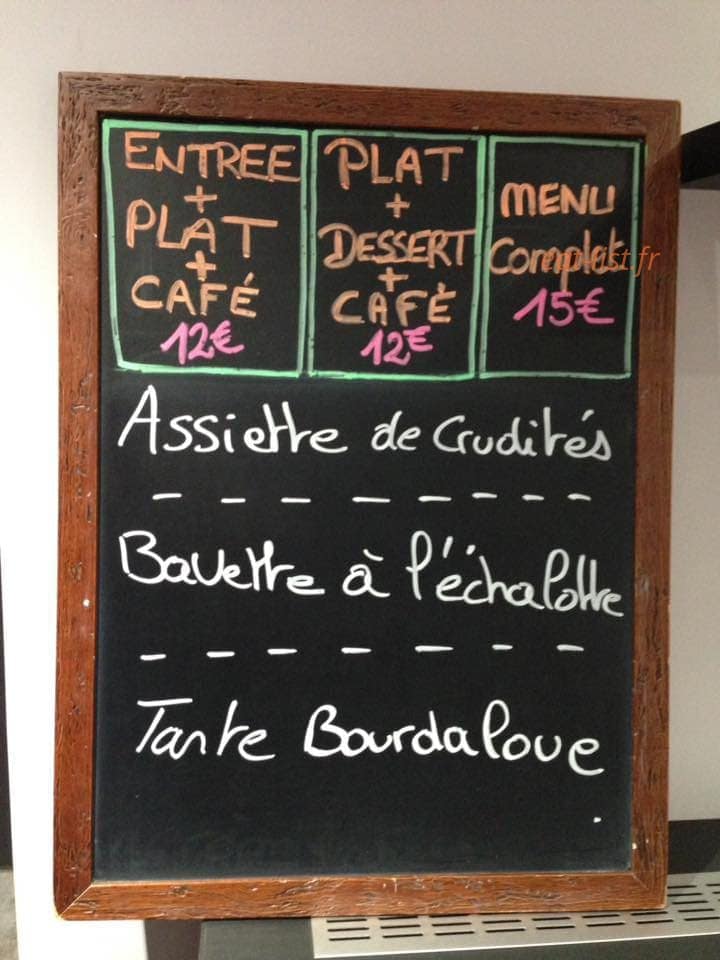 ENTREE
+
PLAT
+
CAFÉ
12€
PLAT
+
DESSERT
+
CAFÉ
12€
MENU
Complet
15€
Assiette de Crudités
Bavette à l'échalotte
Tarte Bourdaloue